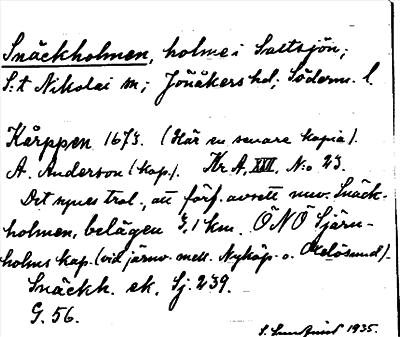 Snäckholmen, holme i Saltsjön;
S:t Nikolai sn; Jönåkers hd; Söderm. l.
Kårppen 1673. (Här en senare kopia).
A. Anderson (kap.). Kr. A, XIII, N:o 23.
Det synes trol., att förf. avsett nuv. Snäck-
holmen, belägen 3,1 km. ÖNÖ Stjärn-
holms kap. (vid järnv. mell. Nyköp. o. Oxelösund).
Snäckh. ek. Sj. 239.
G. 56.
1935.